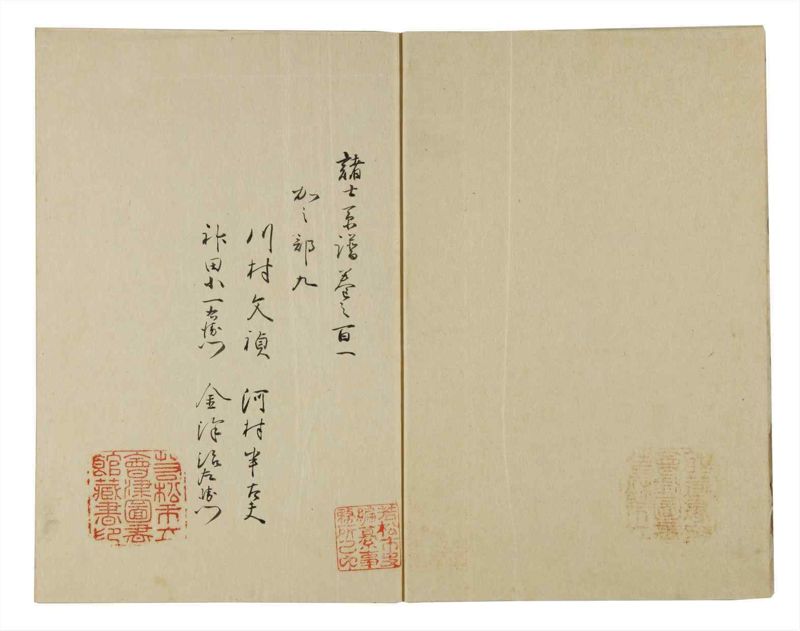 諸士系譜巻之百一
加之部九
川村文禎 河村半左夫
神田小一右衛門 金沢源左衛門
若松市史編纂事務所之印
若松市立會津圖書館藏書印